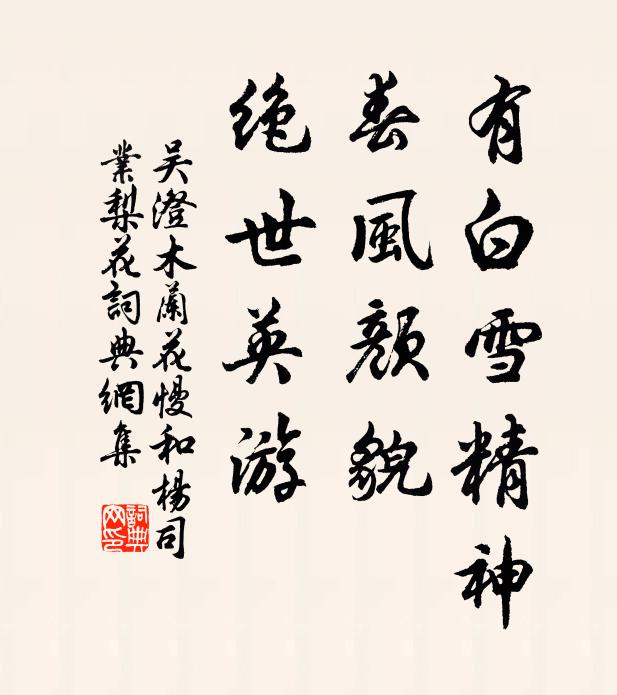 有白雪精神
春風顏貌
绝世英游
吴澄木蘭花慢和楊司
業梨花詞典網集
詞典
网印